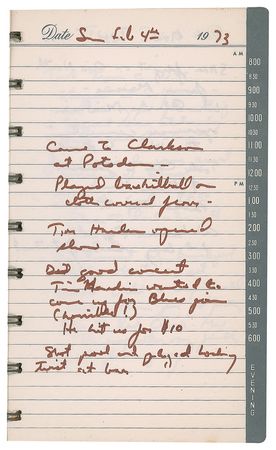 Date Sun Feb 4th 1973
AM
800
900
1000
1100
1200
PM
100
200
300
400
500
600
EVENING
Came to Clarkson
at Potsdam -
Played basketball on
cloth covered floor -
Tim Hardin opened
show -
Did good concert
Tim Hardin wanted to
come up for Blues jam
(horrible!)
He hit us for $10
Shot pool and played hockey
twist at bar